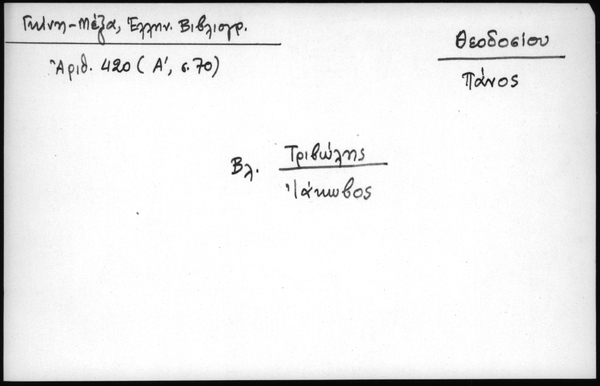 Γκίνη-Μέξα, Ἑλλην. Βιβλιογρ.
Ἀριθ. 420 (Α', σ. 70)
Θεοδοσίου
Πάνος
Βλ. Τριβώλης
Ἰάκωβος